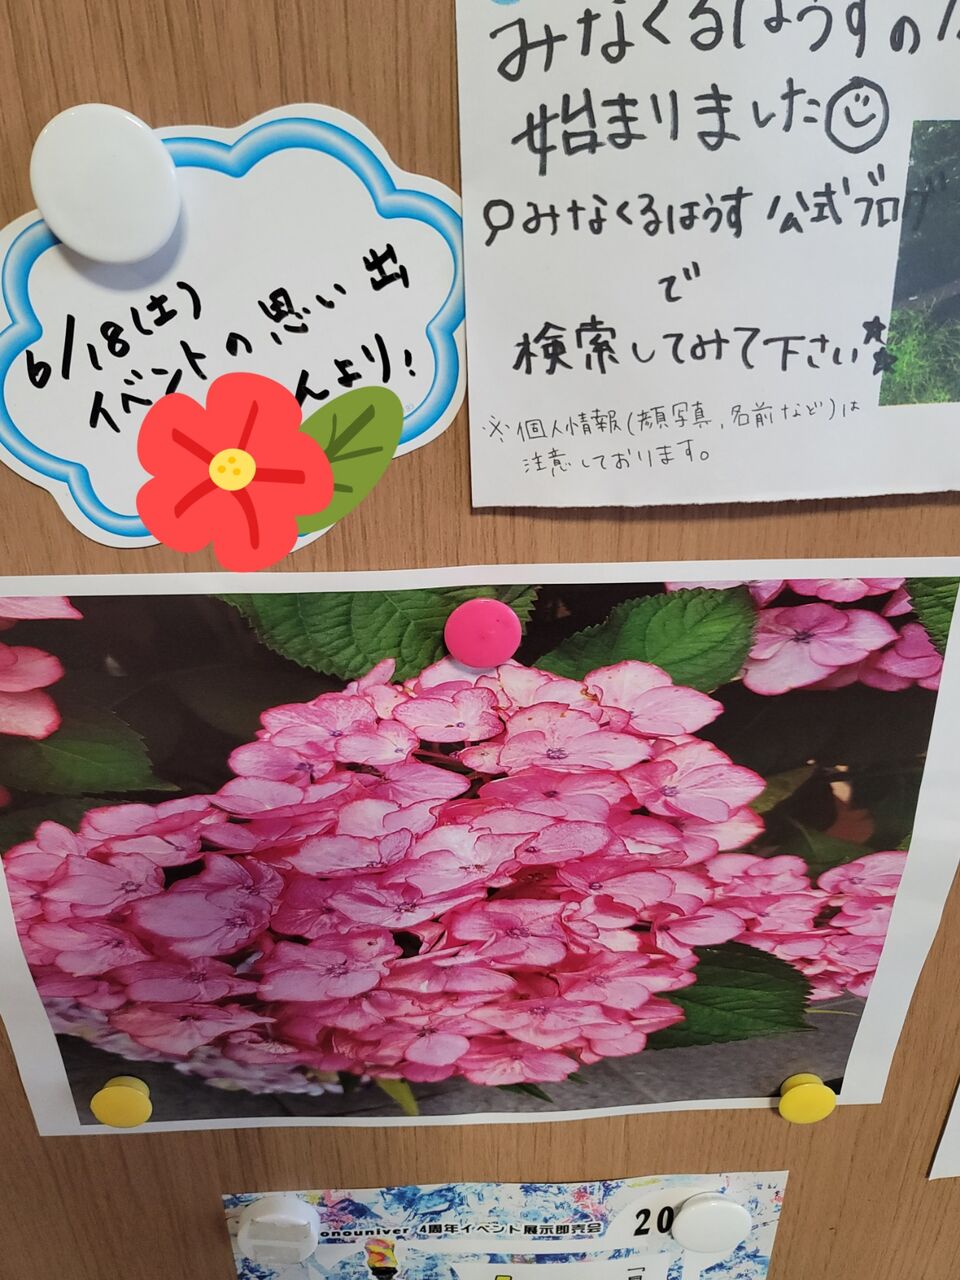 みなくるはうすの
始まりました
みなくるはうす 公式ブログ
で
検索してみて下さい
※個人情報(顔写真,名前など)は
注意しております。
6/18(土)
イベントの思い出
んより!
onouniver 4周年イベント展示即売会
20